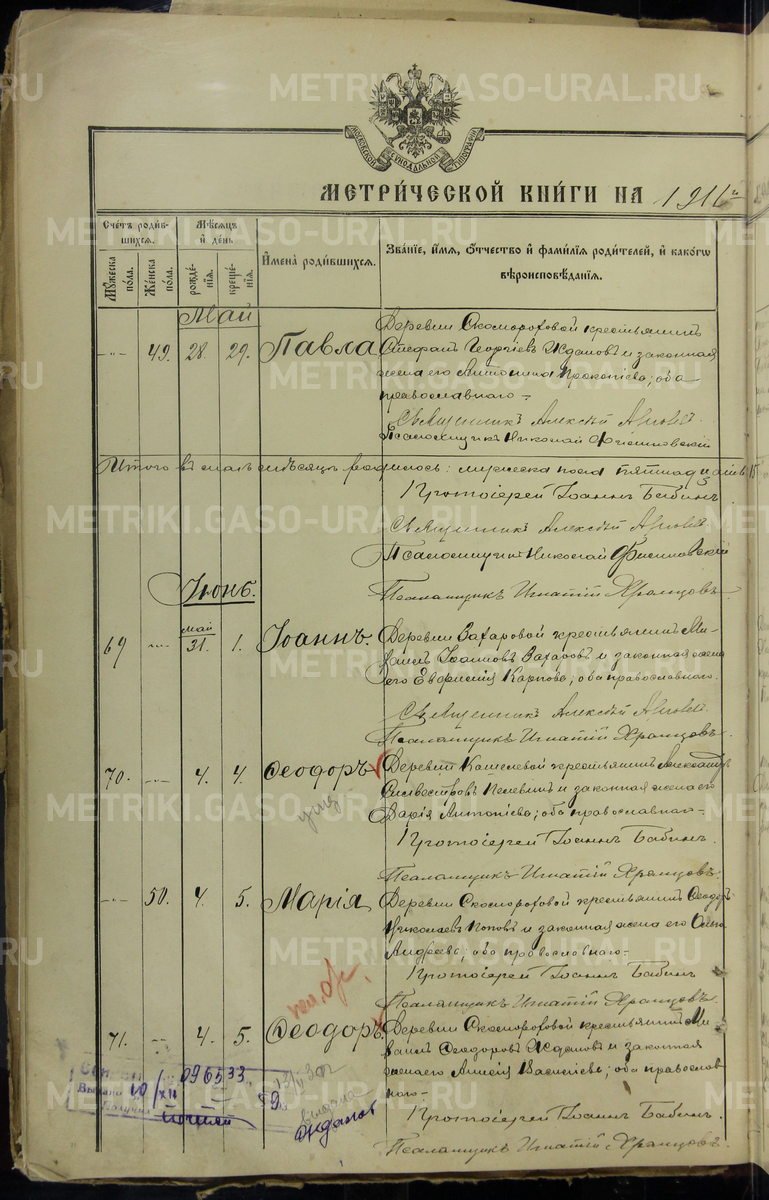 METRIKI.GASO-URAL.RU
МОСКОВСКОЙ СѴНОДАЛЬНОЙ ТИПОГРАФІИ
МЕТРИ́ЧЕСКОЙ КНИ́ГИ НА 1916 г.
Сче́тъ роди́вшихся.
Му́жеска по́ла.
Же́нска по́ла.
Мѣ́сяцъ и҆ де́нь
рожде́нїя.
креще́нїя.
И҆мена̀ роди́вшихся.
Зва́нїе, и҆́мя, ѻ҆́тчество и҆ фами́лїя роди́телей, и҆ како́гѡ вѣроисповѣ́данїя.
Май
-"- 49. 28. 29. Павла
Деревни Скомороховой крестьянинъ
Стефанъ Георгіевъ Ждановъ и законная
жена его Антонина Прокопіева; оба
православнаго
Священникъ Алексѣй
Псаломщикъ Николай
Итого въ маѣ мѣсяцѣ родилось: мужеска пола пятнадцать 15
Протоіерей Іоаннъ Бабинъ
Священникъ Алексѣй
Псаломщикъ Николай
Іюнь.
Псаломщикъ Игнатій Храмцовъ
69 -"- май 31. 1. Іоаннъ.
Деревни Захаровой крестьянинъ Ми-
хаилъ Іоанновъ Захаровъ и законная жена
его Евфимія Карпова; оба православнаго.
Священникъ Алексѣй
Псаломщикъ Игнатій Храмцовъ
70. -"- 4. 4. Ѳеодоръ
Деревни Кошелевой крестьянинъ Александръ
Силвестровъ Пелевинъ и законная жена его
Дарія Антоніева; оба православнаго
Протоіерей Іоаннъ Бабинъ.
Псаломщикъ Игнатій Храмцовъ.
-"- 50. 4. 5. Марія
Деревни Скомороховой крестьянинъ Ѳеодоръ
Николаевъ Поповъ и законная жена его Ольга
Андреева; оба православнаго
Протоіерей Іоаннъ Бабинъ
Псаломщикъ Игнатій Храмцовъ
71. -"- 4. 5. Ѳеодоръ
Деревни Скомороховой крестьянинъ Ми-
хаилъ Ѳеодоровъ Ждановъ и законная
жена его Анисія Василіева; оба православ-
наго
Протоіерей Іоаннъ Бабинъ.
Псаломщикъ Игнатій Храмцовъ.
096533
10/XII
Жданов